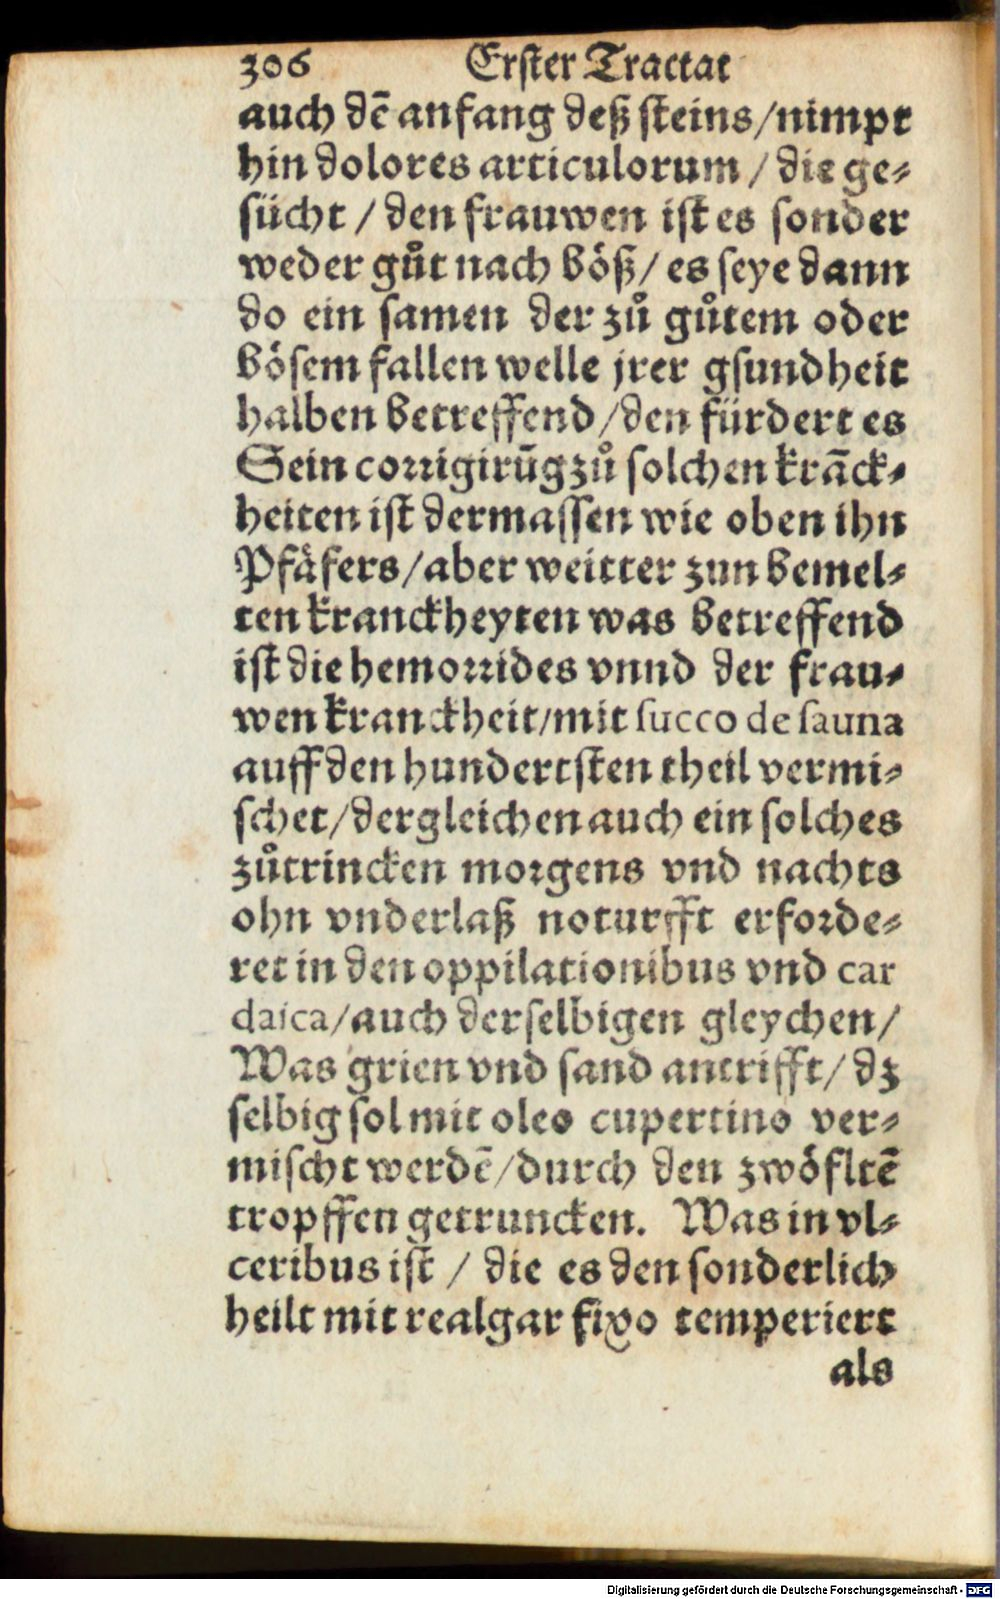 306 Erster Tractat
auch dẽ anfang deß steins/nimpt
hin dolores articulorum / die ge⸗
sücht / den frauwen ist es sonder
weder gůt nach böß/ es seye dann
do ein samen der zů gůtem oder
bösem fallen welle jrer gsundheit
halben betreffend/den fürdert es
Sein corrigirũg zů solchen krãck⸗
heiten ist dermassen wie oben ihn
Pfäfers/aber weitter zun bemel⸗
ten kranckheyten was betreffend
ist die hemorrides vnnd der frau⸗
wen kranckheit/mit succo de sauna
auff den hundertsten theil vermi⸗
schet/dergleichen auch ein solches
zůtrincken morgens vnd nachts
ohn vnderlaß noturfft erforde⸗
ret in den oppilationibus vnd car
daica/auch derselbigen gleychen/
Was grien vnd sand antrifft/ dz
selbig sol mit oleo cupertino ver⸗
mischt werdẽ/durch den zwöfltẽ
tropffen getruncken. Was in vl⸗
ceribus ist / die es den sonderlich
heilt mit realgar fixo temperiert
als
Digitalisierung gefördert durch die Deutsche Forschungsgemeinschaft - DFG